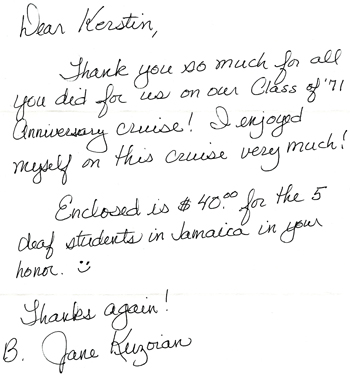 Dear Kerstin,
Thank you so much for all
you did for us on our Class of '71
Anniversary cruise! I enjoyed
myself on this cruise very much!
Enclosed is $40.00 for the 5
deaf students in Jamaica in your
honor. ☺
Thanks again!
B. Jane Kuzoian